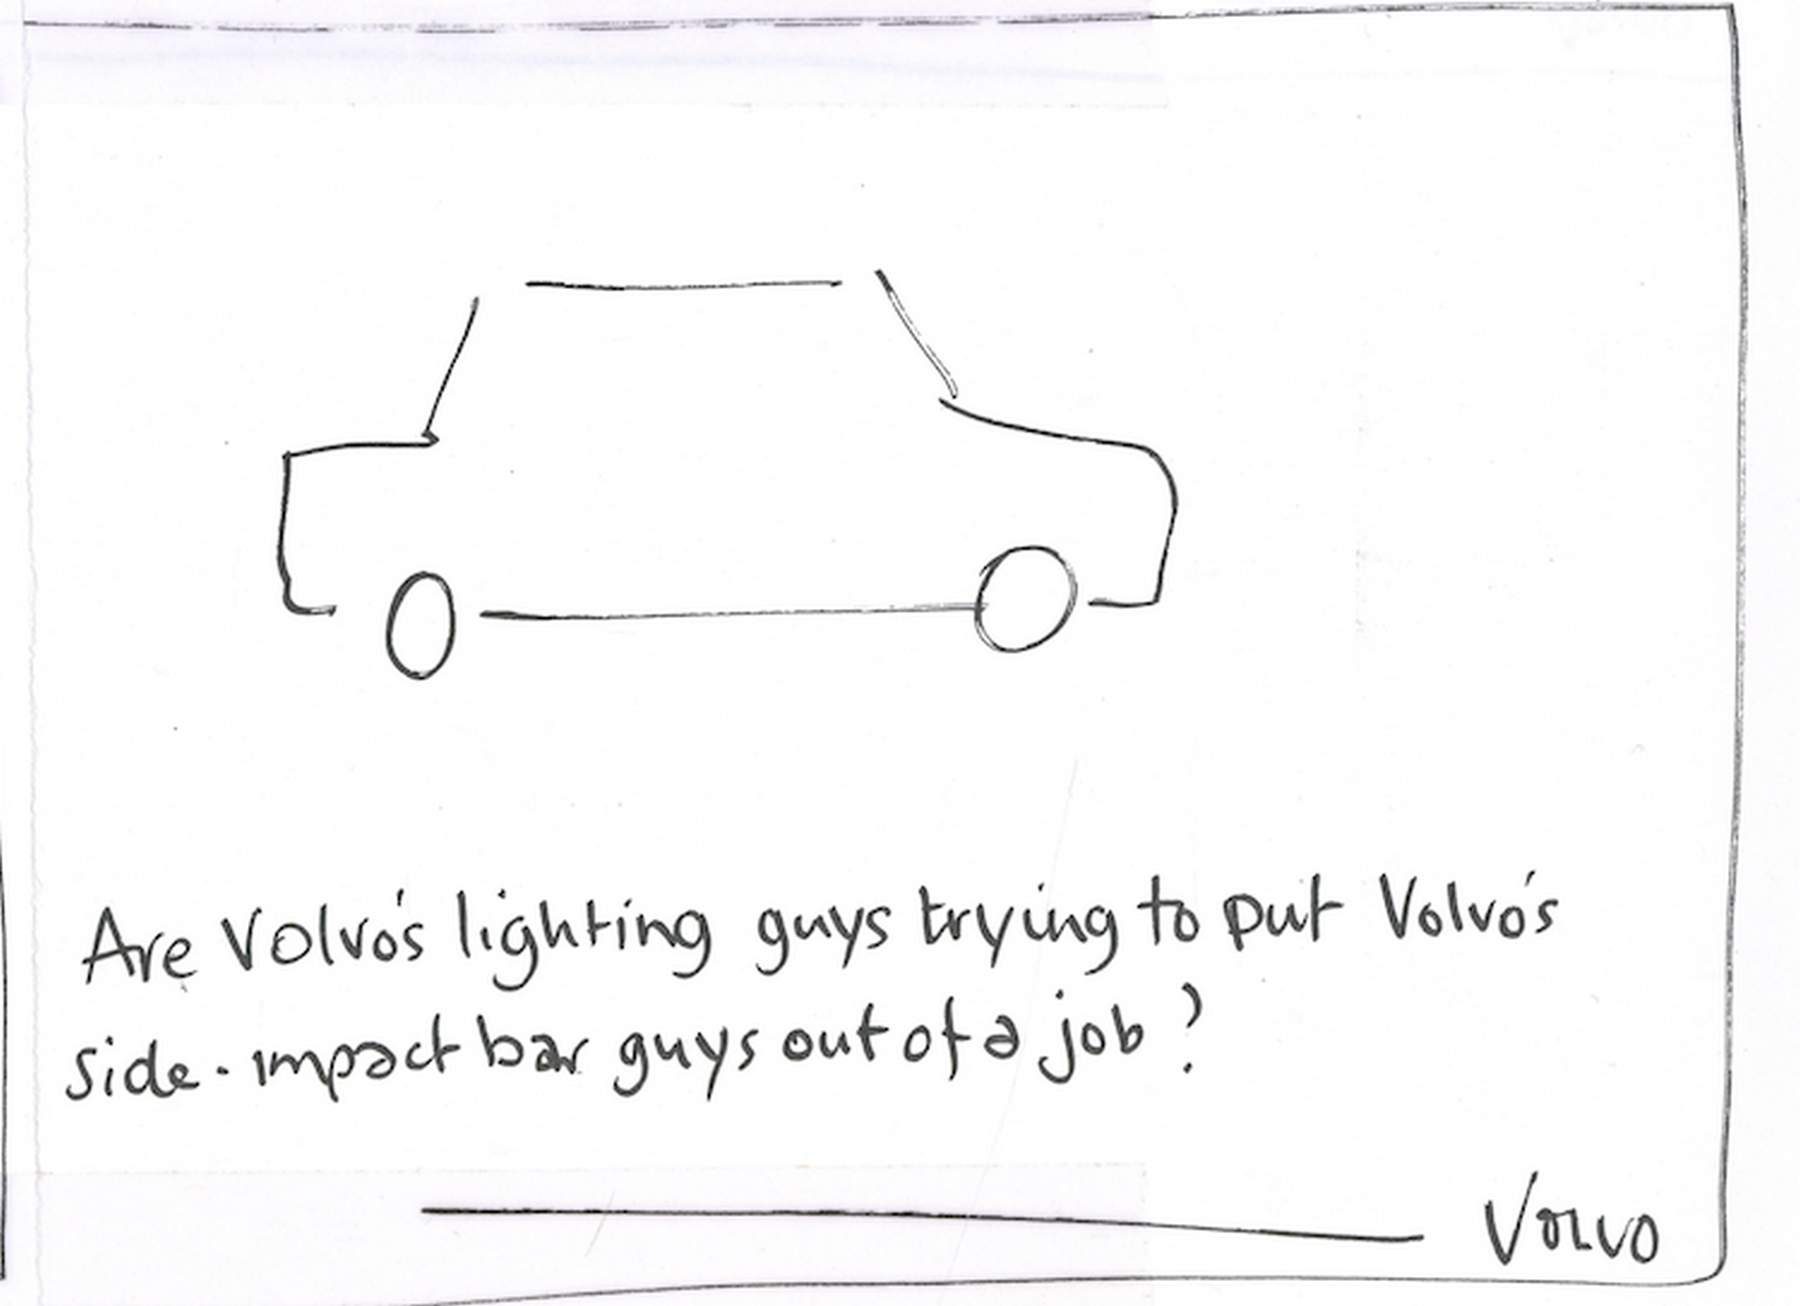 Are Volvo's lighting guys trying to put Volvo's
side-impact bar guys out of a job?
VOLVO